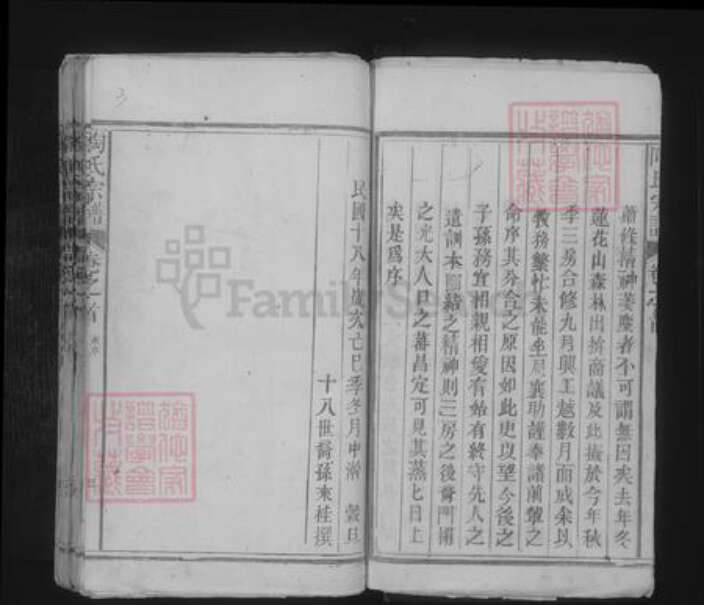 蕭條精神萎靡者不可謂無因矣去年冬
蓮花山森林出拚商議及此擬於今年秋
季三房合修九月興工越數月而成余以
教務繁忙未能坐局襄助謹奉諸前輩之
命序其分合之原因如此更以望今後之
子孫務宜相親相愛有始有終守先人之
遺訓本團結之精神則三房之後齊門閭
之光大人口之蕃昌定可見其蒸七日上
矣是為序
民國十八年歲次己巳季冬月中澣 穀旦
十八世裔孫來桂撰
陶氏宗譜
卷之首
3
FamilySearch